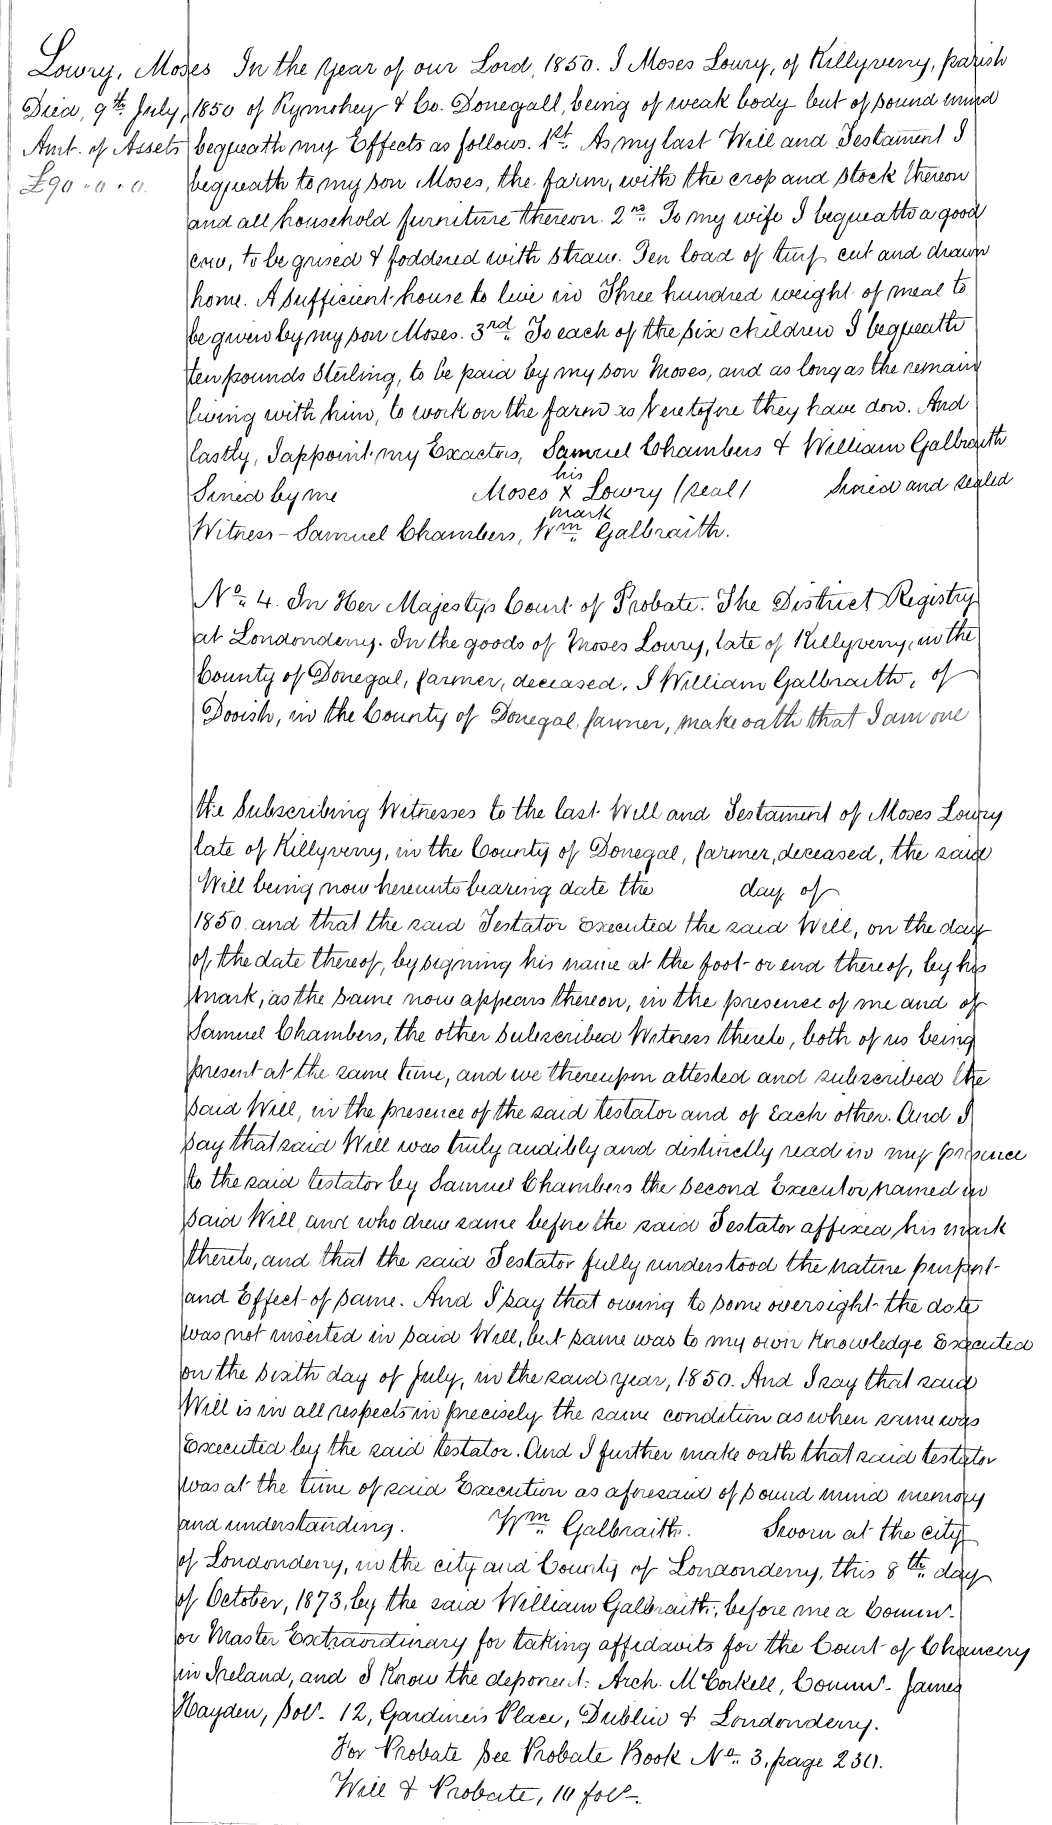 Lowry, Moses In the year of our Lord, 1850. I Moses Lowry, of Killyverry, parish
Died, 9th July, 1850 of Rymohey & Co. Donegall, being of weak body but of sound mind
Amt. of Assets bequeath my Effects as follows. 1st. As my last Will and Testament I
£90-0.0. bequeath to my son Moses, the farm, with the crop and stock thereon
and all household furniture thereon. 2nd. To my wife I bequeath a good
cow, to be grised & foddered with straw. Ten load of turf cut and drawn
home. A sufficient house to live in Three hundred weight of meal to
be given by my son Moses. 3rd. To each of the six children I bequeath
ten pounds Sterling, to be paid by my son Moses, and as long as the remain
living with him, to work on the farm as heretofore they have don. And
lastly, I appoint my Exactors, Samuel Chambers & William Galbraith
Sined by me Moses his x mark Lowry (seal) Sined and sealed
Witness - Samuel Chambers, Wm. Galbraith.
No. 4. In Her Majestys Court of Probate. The District Registry
at Londonderry. In the goods of Moses Lowry, late of Killyverry, in the
County of Donegal, farmer, deceased. I William Galbraith, of
Dooish, in the County of Donegal, farmer, make oath that I am one
the Subscribing Witnesses to the last Will and Testament of Moses Lowry
late of Killyverry, in the County of Donegal, farmer, deceased, the said
Will being now hereunto bearing date the day of
1850 and that the said Testator Executed the said Will, on the day
of the date thereof, by signing his name at the foot or end thereof, by his
mark, as the same now appears thereon, in the presence of me and of
Samuel Chambers, the other subscribed Witness thereto, both of us being
present at the same time, and we thereupon attested and subscribed the
said Will, in the presence of the said testator and of Each other. And I
say that said Will was truly audibly and distinctly read in my presence
to the said testator by Samuel Chambers the second Executor, named in
said Will, and who drew same before the said Testator affixed his mark
thereto, and that the said Testator fully understood the nature purport
and Effect of same. And I say that owing to some oversight the date
was not inserted in said Will, but same was to my own knowledge Executed
on the sixth day of July, in the said year, 1850. And I say that said
Will is in all respects in precisely the same condition as when same was
Executed by the said testator. And I further make oath that said testator
was at the time of said Execution as aforesaid of sound mind memory
and understanding. Wm. Galbraith. Sworn at the city
of Londonderry, in the city and County of Londonderry, this 8th. day
of October, 1873, by the said William Galbraith, before me a Commr.
or Master Extraordinary for taking affidavits for the Court of Chancery
in Ireland, and I know the deponent: Arch. McCorkell, Commr. James
Hayden, Solr. 12, Gardiners Place, Dublin & Londonderry.
For Probate see Probate Book No. 3, page 230.
Will & Probate, 10 fols.